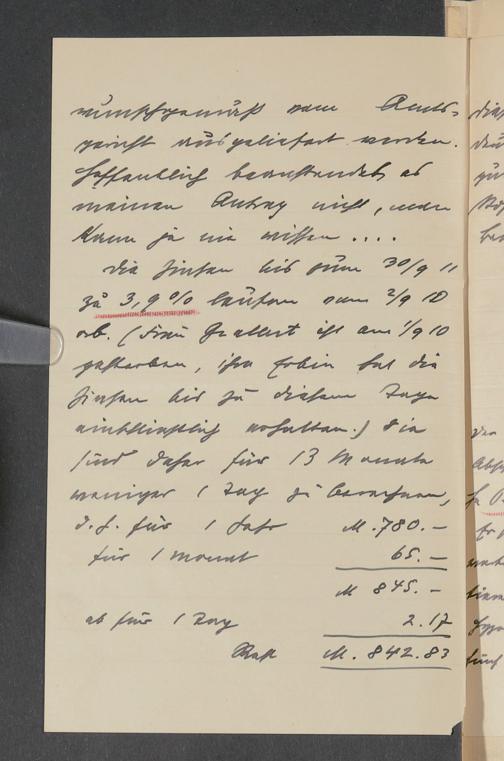 wunschgemäß vom Amts-
gericht ausgeliefert werden.
Hoffentlich beanstandet es
meinen Antrag nicht, man
kann ja nie wissen ....
Die Zinsen bis zum 30/9 11
zu 3,9% laufen vom 2/9 10
ab. (Frau Grallert ist am 1/9 10
gestorben, ihre Erbin hat die
Zinsen bis zu diesem Tage
einschließlich erhalten.) Sie
sind daher für 13 Monate
weniger 1 Tag zu berechnen,
d.h. für 1 Jahr M. 780.—
für 1 Monat 65.—
M 845.—
ab für 1 Tag 2.17
Rest M. 842.83